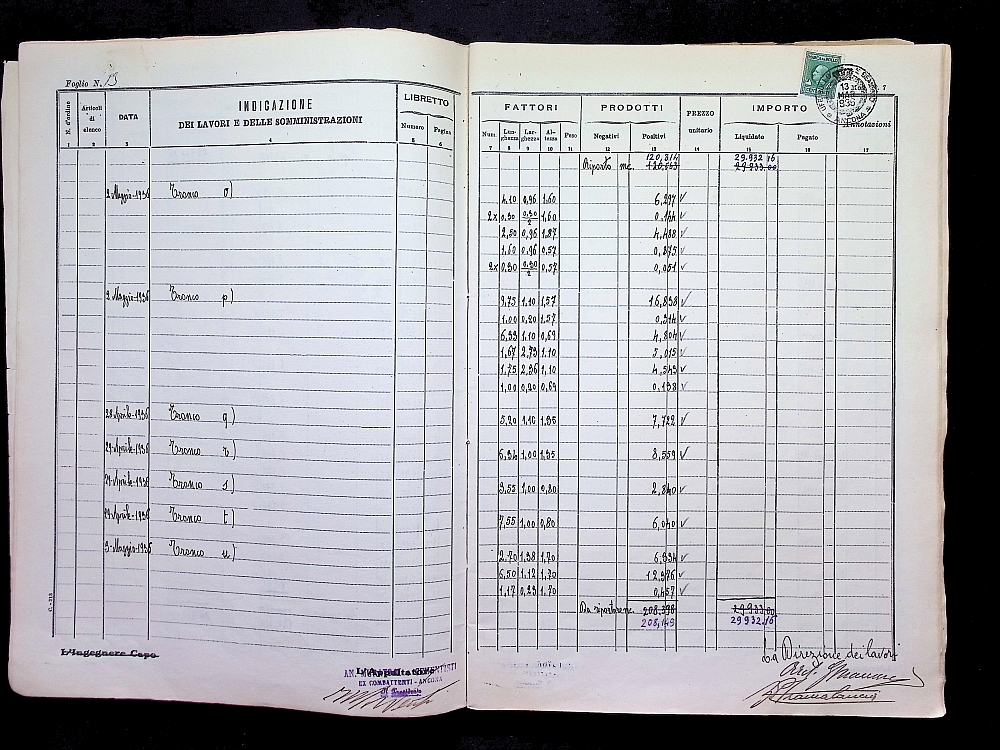 Foglio N. 13
N. d'ordine
Articoli di elenco
DATA
INDICAZIONE
DEI LAVORI E DELLE SOMMINISTRAZIONI
LIBRETTO
Numero Pagina
1 2 3 4 5 6
2 Maggio-1936 Tronco o)
2 Maggio-1936 Tronco p)
28 Aprile-1936 Tronco q)
29 Aprile-1936 Tronco r)
29 Aprile-1936 Tronco s)
29 Aprile-1936 Tronco t)
3-Maggio-1936 Tronco u)
L'Ingegnere Capo
L'Appaltatore
EX COMBATTENTI - ANCONA
Il Presidente
7
13 MAG 1936
ANCONA
FATTORI PRODOTTI PREZZO unitario IMPORTO Annotazioni
Num. Lunghezza Larghezza Altezza Peso Negativi Positivi Liquidato Pagato
7 8 9 10 11 12 13 14 15 16 17
120,814 29.932 16
Riporto mc. 29933.00
4.10 0,96 1.60 6,297
2x 0,30 0.30/2 1,60 0.144
2,50 0,96 1,87 4,488
1,60 0.96 0.57 0,875
2x 0.30 0.30/2 0,57 0,051
9,75 1.10 1,57 16,838
1.00 0,20 1.57 0,314
6,33 1.10 0,69 4,804
1,67 2,73 1.10 5,015
1,75 2,36 1,10 4,543
1,00 0,20 0,69 0,138
5,20 1.10 1,35 7,722
6,34 1,00 1,35 8,559
3,55 1,00 0,80 2,840
7,55 1,00 0,80 6,040
2.70 1,38 1,70 6,334
6,50 1.12 1,70 12,376
1,17 0,23 1.70 0,457
Da riportare mc. 208,398 29933.00
208,149 29932.16
La Direzione dei lavori
C. - 213